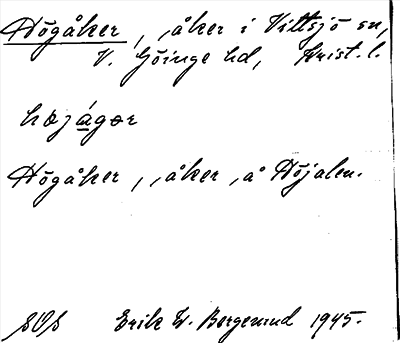 Högåker, ,åker i Vittsjö sn,
V. Göinge hd, Krist. l.
højágər
Högåker, ,åker ,å Höjalen.
SOS Erik W. Bergerund 1945.